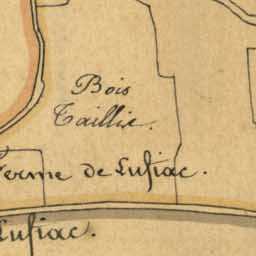 Bois
Taillis.
Ferme de Lusiac.
Lusiac.